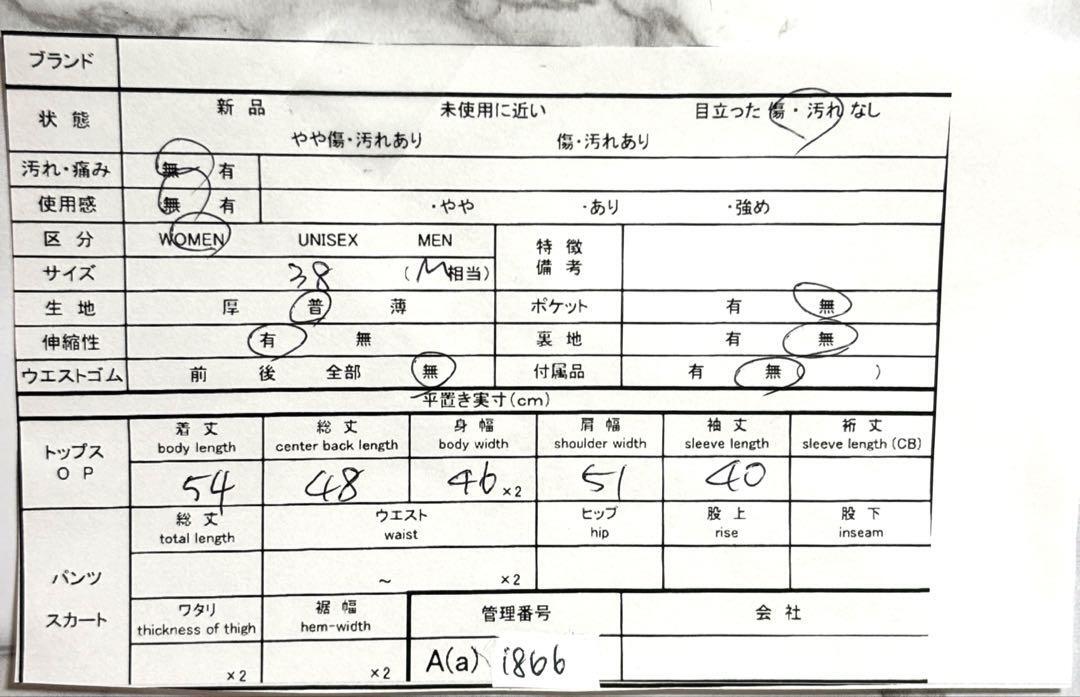 ブランド
状態 新品 未使用に近い 目立った傷・汚れなし
やや傷・汚れあり 傷・汚れあり
汚れ・痛み 無 有
使用感 無 有 ・やや ・あり ・強め
区分 WOMEN UNISEX MEN 特徴
備考
サイズ 38 (M相当)
生地 厚 普 薄 ポケット 有 無
伸縮性 有 無 裏地 有 無
ウエストゴム 前 後 全部 無 付属品 有 無 )
平置き実寸(cm)
トップス
OP
着丈 総丈 身幅 肩幅 袖丈 裄丈
body length center back length body width shoulder width sleeve length sleeve length (CB)
54 48 46 ×2 51 40
総丈 ウエスト ヒップ 股上 股下
total length waist hip rise inseam
パンツ ~ ×2
スカート
ワタリ 裾幅 管理番号 会社
thickness of thigh hem-width
×2 ×2 A(a) i866